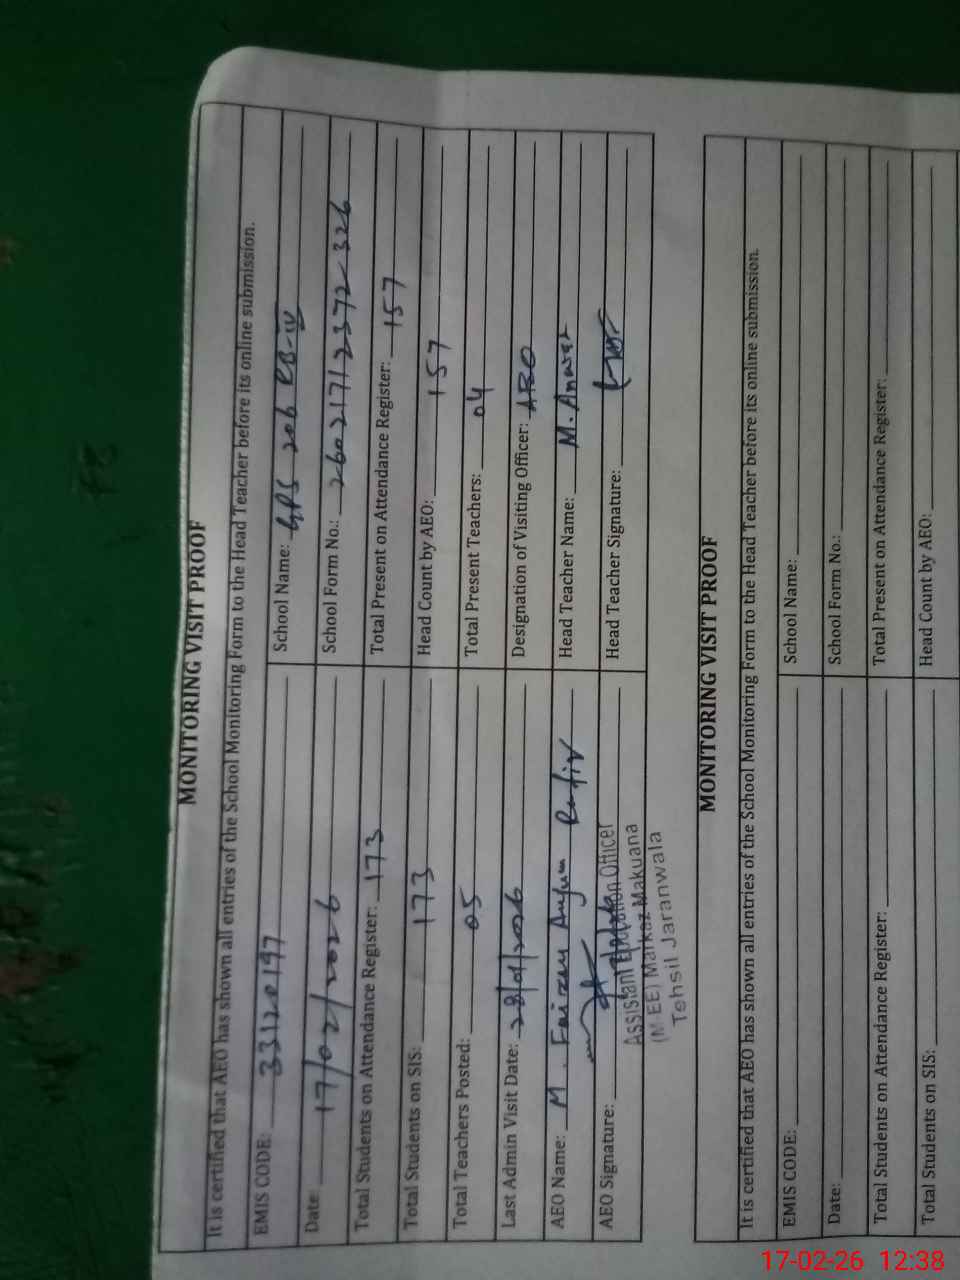 MONITORING VISIT PROOF
It is certified that AEO has shown all entries of the School Monitoring Form to the Head Teacher before its online submission.
EMIS CODE: 33120197 School Name: GPS 206 RB-IV
Date: 17/02/2026 School Form No.: 2602171 2372 326
Total Students on Attendance Register: 173 Total Present on Attendance Register: 157
Total Students on SIS: 173 Head Count by AEO: 157
Total Teachers Posted: 05 Total Present Teachers: 04
Last Admin Visit Date: 28/01/2026 Designation of Visiting Officer: AEO
AEO Name: M. Faizan Anjum Head Teacher Name: M. Anwar
AEO Signature: Head Teacher Signature:
Assistant Education Officer
(M-EE) Markaz Makuana
Tehsil Jaranwala
MONITORING VISIT PROOF
It is certified that AEO has shown all entries of the School Monitoring Form to the Head Teacher before its online submission.
EMIS CODE: School Name:
Date: School Form No.:
Total Students on Attendance Register: Total Present on Attendance Register:
Total Students on SIS: Head Count by AEO:
17-02-26 12:38